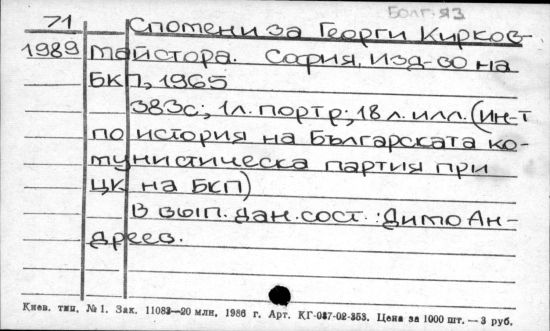 Болг. яз
71 Спомени за Георги Кирков-
1989 Майстора. София, Изд-во на
БКП, 1965
383с; 1л. портр; 18 л. илл. (Ин-т
по история на Българската ко-
мунистическа партия при
ЦК на БКП)
В вып. дан. сост.: Димо Ан-
дреев.
Киев. тип. № 1. Зак. 11083—20 млн. 1986 г. Арт. КГ-037-02-353. Цена за 1000 шт. — 3 руб.